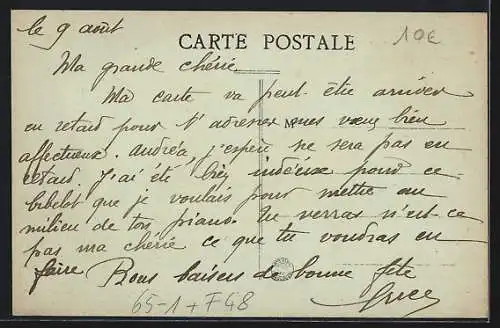 le 9 août
CARTE POSTALE
10€
Ma grande chérie
Ma carte va peut-être arriver
en retard pour t'adresser mes vœux bien
affectueux. Andréa, j'espère ne sera pas en
retard. J'ai été bien indécise pour ce
bibelot que je voulais pour mettre au
milieu de ton piano. Tu verras n'est-ce
pas ma chérie ce que tu voudras en
faire Bons baisers de bonne fête
65-1 + F48